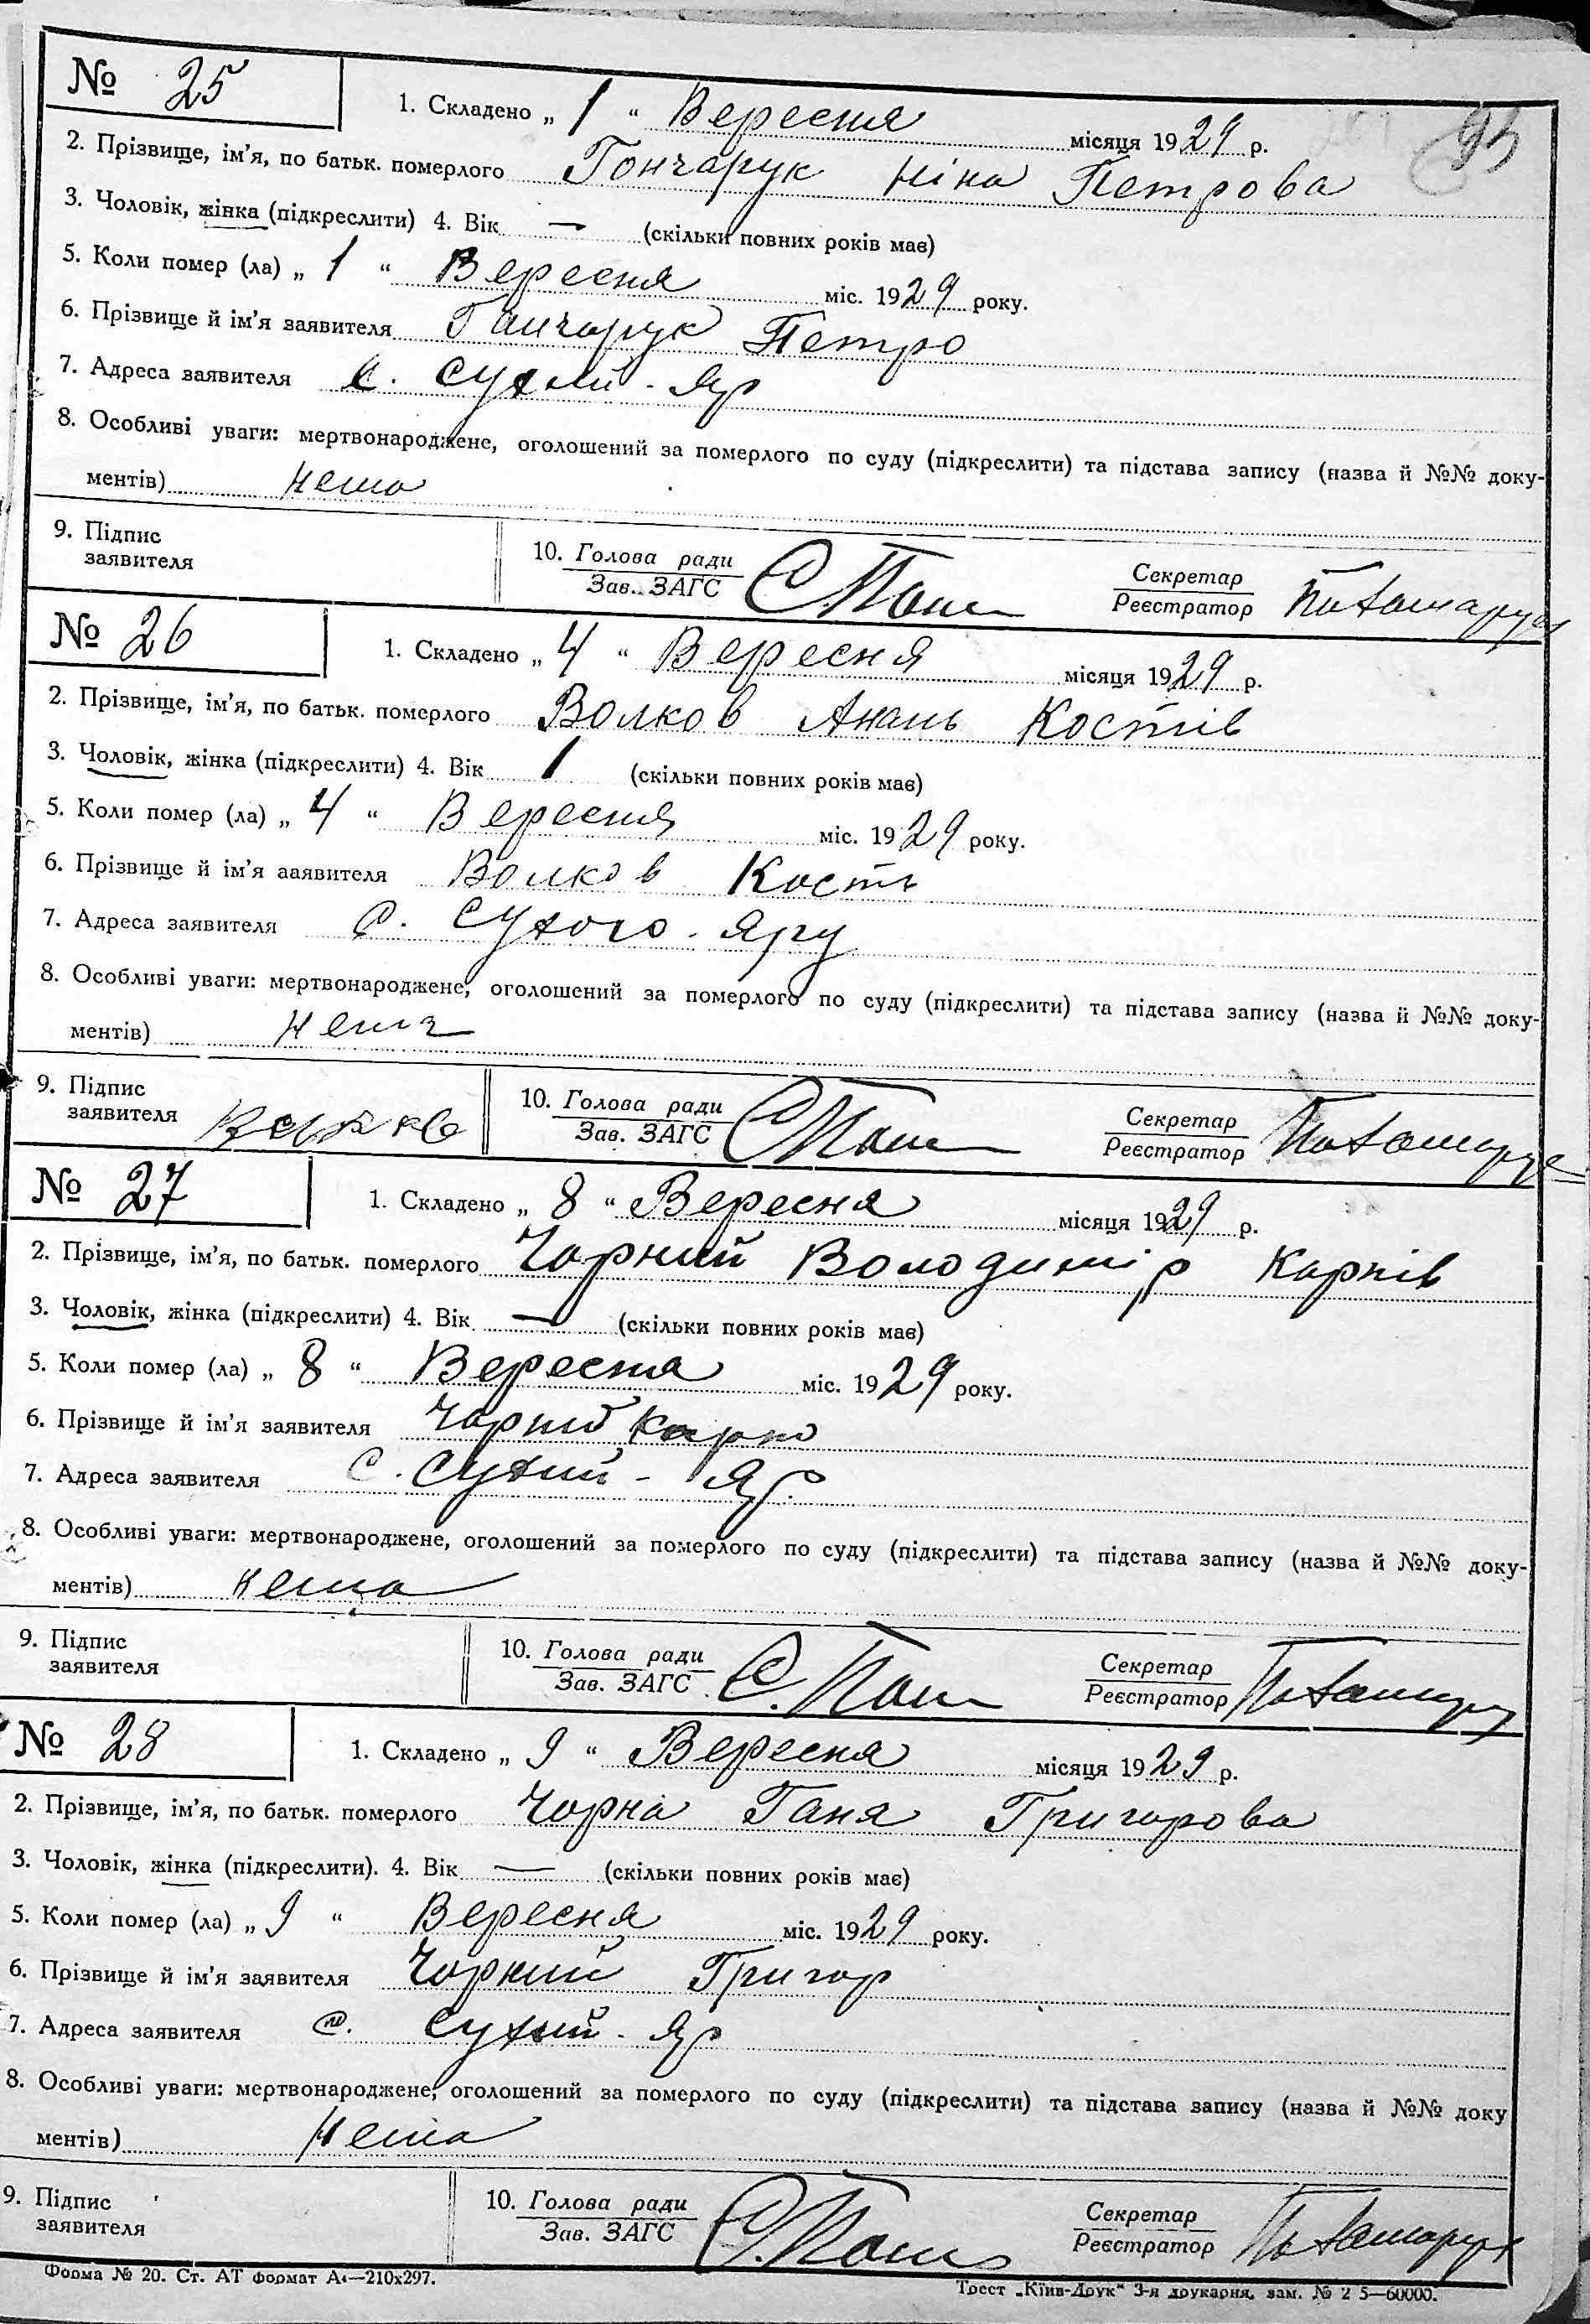 95
№ 25
1. Складено „ 1 “ Вересня місяця 1929 р.
2. Прізвище, ім’я, по батьк. померлого Гончарук Ніна Петрова
3. Чоловік, жінка (підкреслити) 4. Вік — (скільки повних років має)
5. Коли помер (ла) „ 1 “ Вересня міс. 1929 року.
6. Прізвище й ім’я заявителя Гончарук Петро
7. Адреса заявителя с. Сухий-Яр
8. Особливі уваги: мертвонароджене, оголошений за померлого по суду (підкреслити) та підстава запису (назва й №№ доку-
ментів) нема
9. Підпис заявителя 10. Голова ради Зав. ЗАГС Секретар Реєстратор
№ 26
1. Складено „ 4 “ Вересня місяця 1929 р.
2. Прізвище, ім’я, по батьк. померлого Волков Анань Костів
3. Чоловік, жінка (підкреслити) 4. Вік 1 (скільки повних років має)
5. Коли помер (ла) „ 4 “ Вересня міс. 1929 року.
6. Прізвище й ім’я ааявителя Волков Кость
7. Адреса заявителя с. Сухого-Яру
8. Особливі уваги: мертвонароджене, оголошений за померлого по суду (підкреслити) та підстава запису (назва й №№ доку-
ментів) нема
9. Підпис заявителя 10. Голова ради Зав. ЗАГС Секретар Реєстратор
№ 27
1. Складено „ 8 “ Вересня місяця 1929 р.
2. Прізвище, ім’я, по батьк. померлого Чорний Володимір Карпів
3. Чоловік, жінка (підкреслити) 4. Вік — (скільки повних років має)
5. Коли помер (ла) „ 8 “ Вересня міс. 1929 року.
6. Прізвище й ім’я заявителя Чорний Карпо
7. Адреса заявителя с. Сухий-Яр.
8. Особливі уваги: мертвонароджене, оголошений за померлого по суду (підкреслити) та підстава запису (назва й №№ доку-
ментів) нема
9. Підпис заявителя 10. Голова ради Зав. ЗАГС Секретар Реєстратор
№ 28
1. Складено „ 9 “ Вересня місяця 1929 р.
2. Прізвище, ім’я, по батьк. померлого Чорна Ганя Григорова
3. Чоловік, жінка (підкреслити). 4. Вік — (скільки повних років має)
5. Коли помер (ла) „ 9 “ Вересня міс. 1929 року.
6. Прізвище й ім’я заявителя Чорний Григор
7. Адреса заявителя с. Сухий-Яр
8. Особливі уваги: мертвонароджене, оголошений за померлого по суду (підкреслити) та підстава запису (назва й №№ доку
ментів) нема
9. Підпис заявителя 10. Голова ради Зав. ЗАГС Секретар Реєстратор
Форма № 20. Ст. АТ формат А4—210х297.
Трест „Київ-Друк“ 3-я друкарня, зам. № 2 5—60000.